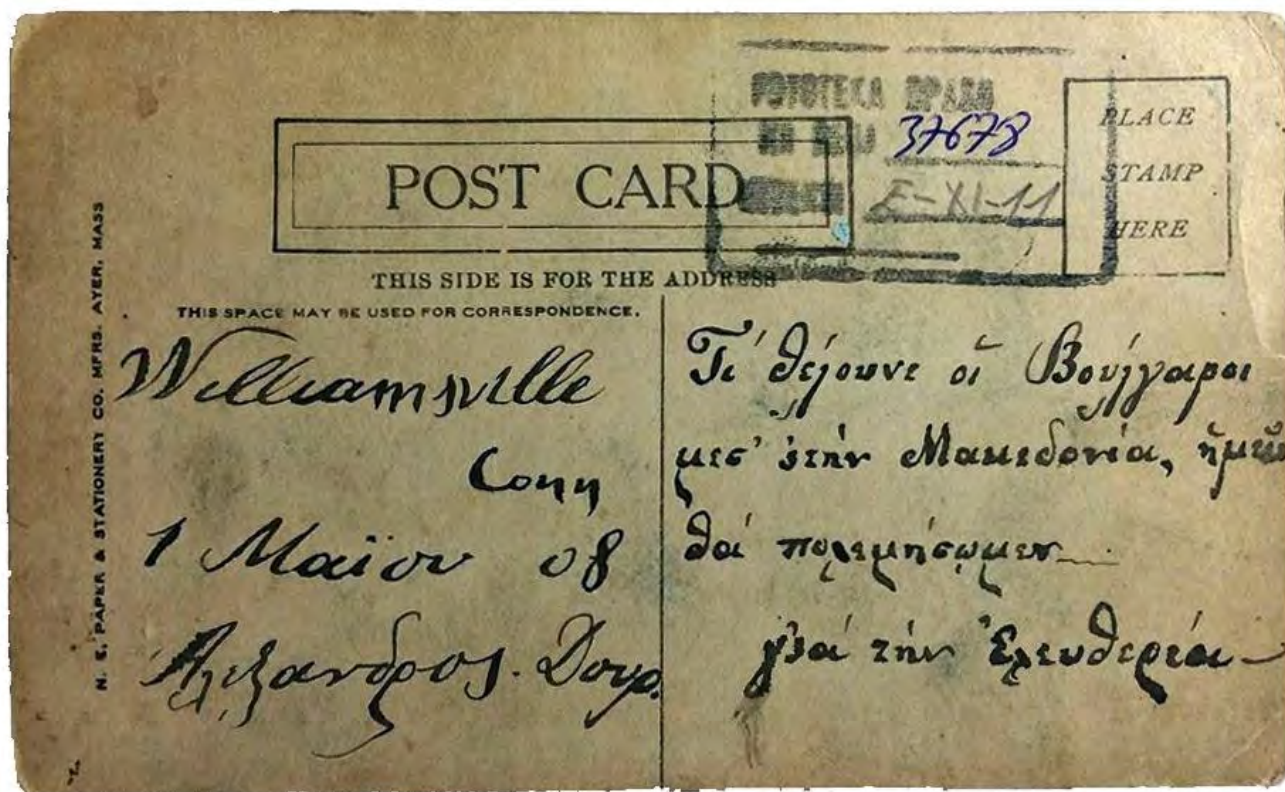 POST CARD
PLACE
STAMP
HERE
37678
THIS SIDE IS FOR THE ADDRESS
THIS SPACE MAY BE USED FOR CORRESPONDENCE.
N. E. PAPER & STATIONERY CO. MFRS. AYER, MASS
Williamsville
Conn
1 Μαΐου 08
Ἀλέξανδρος. Δουρ.
Τί θέλουνε οἱ Βούλγαροι
μεσ' 'στὴν Μακεδονία, ἡμεῖς
θά πολεμήσωμεν
γιὰ τὴν Ἐλευθερία